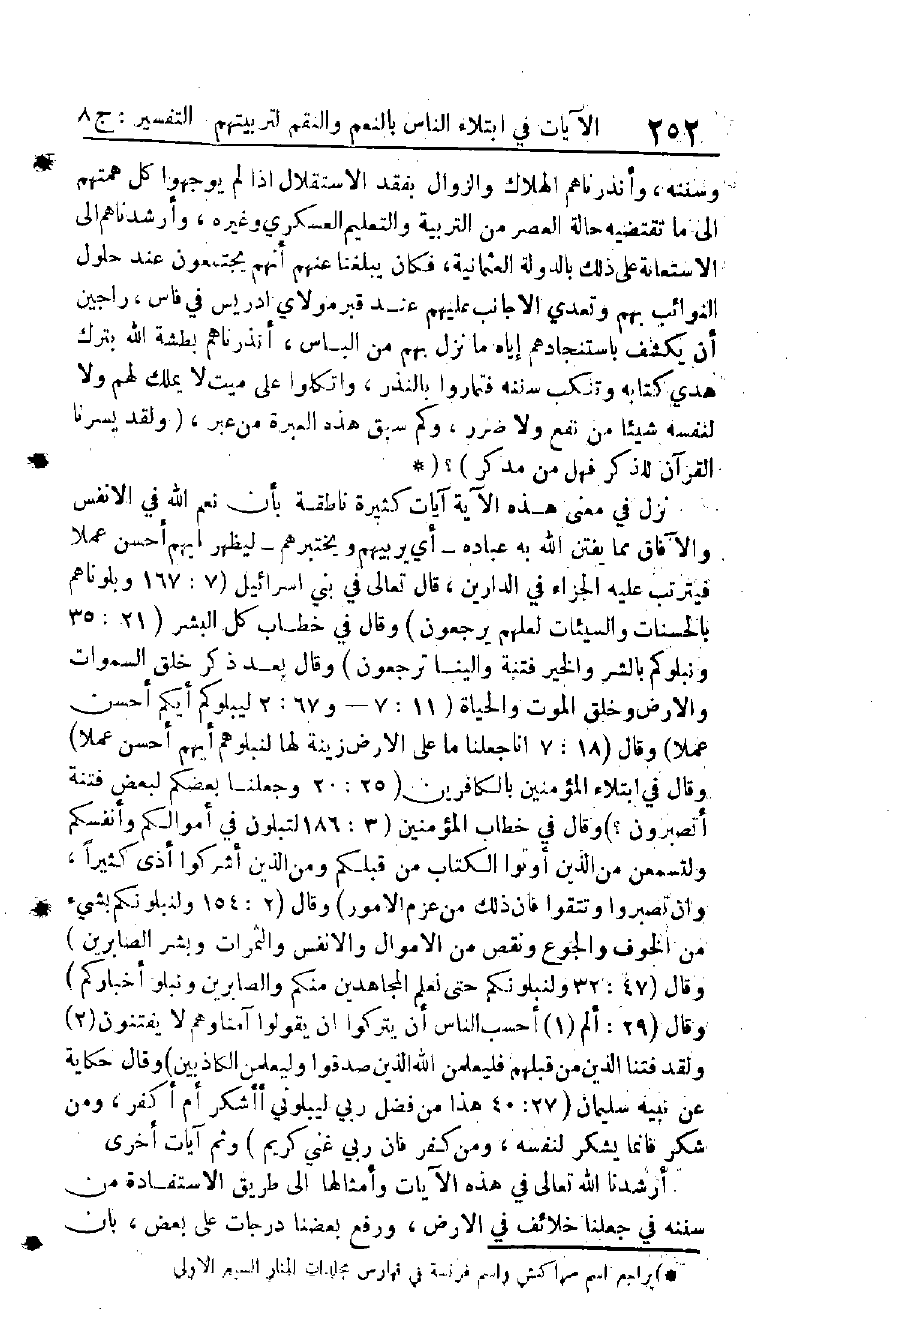 ٢٥٢ الآيات في ابتلاء الناس بالنعم والنقم لتربيتهم. التفسير : ج ٨
وسننه ، وأنذرناهم الهلاك والزوال بفقد الاستقلال اذا لم يوجهوا كل همتهم
الى ما تقتضيه حالة العصر من التربية والتعليم العسكري وغيره ، وأرشدناهم الى
الاستعانة على ذلك بالدولة العثمانية ، فكان يبلغنا عنهم أنهم يجتمعون عند حلول
النوائب بهم وتعدي الاجانب عليهم عند قبر مولاي ادريس في فاس ، راجين
أن يكشف باستنجادهم إياه ما نزل بهم من البأس ، أنذرناهم بطشة الله بترك
هدي كتابه وتنكب سننه فتماروا بالنذر ، واتكلوا على ميت لا يملك لهم ولا
لنفسه شيئا من نفع ولا ضرر ، وكم سبق هذه العبرة من عبر ، ( ولقد يسرنا
القرآن للذكر فهل من مدكر ) ؟ (*
نزل في معنى هذه الآية آيات كثيرة ناطقة بأن نعم الله في الانفس
والآفاق مما يفتن الله به عباده - أي يربيهم ويختبرهم - ليظهر أيهم أحسن عملا
فيترتب عليه الجزاء في الدارين ، قال تعالى في بني اسرائيل (٧ : ١٦٧ وبلوناهم
بالحسنات والسيئات لعلهم يرجعون ) وقال في خطاب كل البشر ( ٢١ : ٣٥
ونبلوكم بالشر والخير فتنة والينا ترجعون ) وقال بعد ذكر خلق السموات
والارض وخلق الموت والحياة ( ١١ : ٧ — و ٦٧ : ٢ ليبلوكم أيكم أحسن
عملا) وقال (١٨ : ٧ انا جعلنا ما على الارض زينة لها لنبلوهم أيهم أحسن عملا)
وقال في ابتلاء المؤمنين بالكافرين ( ٢٥ : ٢٠ وجعلنا بعضكم لبعض فتنة
أتصبرون ؟) وقال في خطاب المؤمنين ( ٣ : ١٨٦ لتبلون في أموالكم وأنفسكم
ولتسمعن من الذين أوتوا الكتاب من قبلكم ومن الذين أشركوا أذى كثيراً ،
وان تصبروا وتتقوا فان ذلك من عزم الامور) وقال (٢ : ١٥٤ ولنبلونكم بشيء
من الخوف والجوع ونقص من الاموال والانفس والثمرات وبشر الصابرين )
وقال (٤٧ : ٣٢ ولنبلونكم حتى نعلم المجاهدين منكم والصابرين ونبلو أخباركم )
وقال (٢٩ : ألم (١) أحسب الناس أن يتركوا ان يقولوا آمنا وهم لا يفتنون (٢)
ولقد فتنا الذين من قبلهم فليعلمن الله الذين صدقوا وليعلمن الكاذبين) وقال حكاية
عن نبيه سليمان ( ٢٧: ٤٠ هذا من فضل ربي ليبلوني أأشكر أم أكفر ، ومن
شكر فانما يشكر لنفسه ، ومن كفر فان ربي غني كريم ) وثم آيات أخرى
أرشدنا الله تعالى في هذه الآيات وأمثالها الى طريق الاستفادة من
سننه في جعلنا خلائف في الارض ، ورفع بعضنا درجات على بعض ، بأن
*) يراجع اسم مراكش واسم فرنسة في فهارس مجلدات المنار السبع الاولى